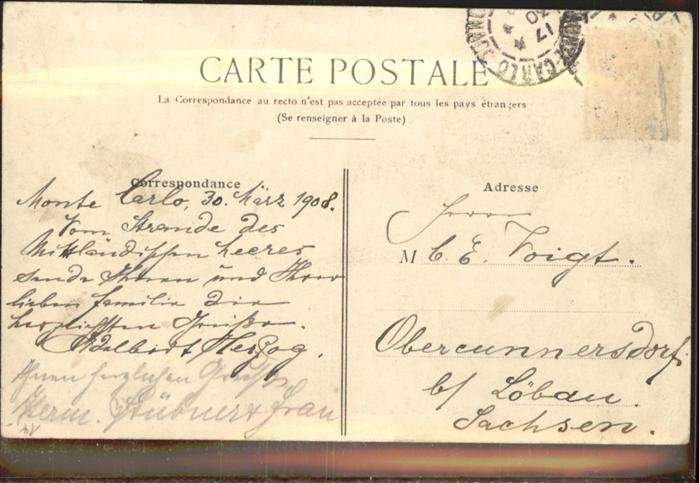 CARTE POSTALE
La Correspondance au recto n'est pas acceptée par tous les pays étrangers
(Se renseigner à la Poste)
Correspondance
Monte Carlo, 30. März 1908.
Vom Strande des
Mittländischen Meeres
sende Ihnen und Ihrer
lieben Familie die
herzlichsten Grüße.
Adalbert Herzog.
Ihnen herzlichen Gruß
Herm. Stübner & Frau
Adresse
Herrn
M C. E. Voigt.
Obercunnersdorf
b/ Löbau.
Sachsen.
MONTE-CARLO
17